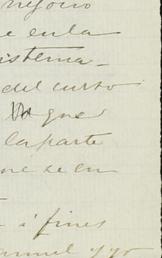 negocio
e en la
sistema-
del curso
que
la parte
ne se en
-
- á fines
anuel y yo